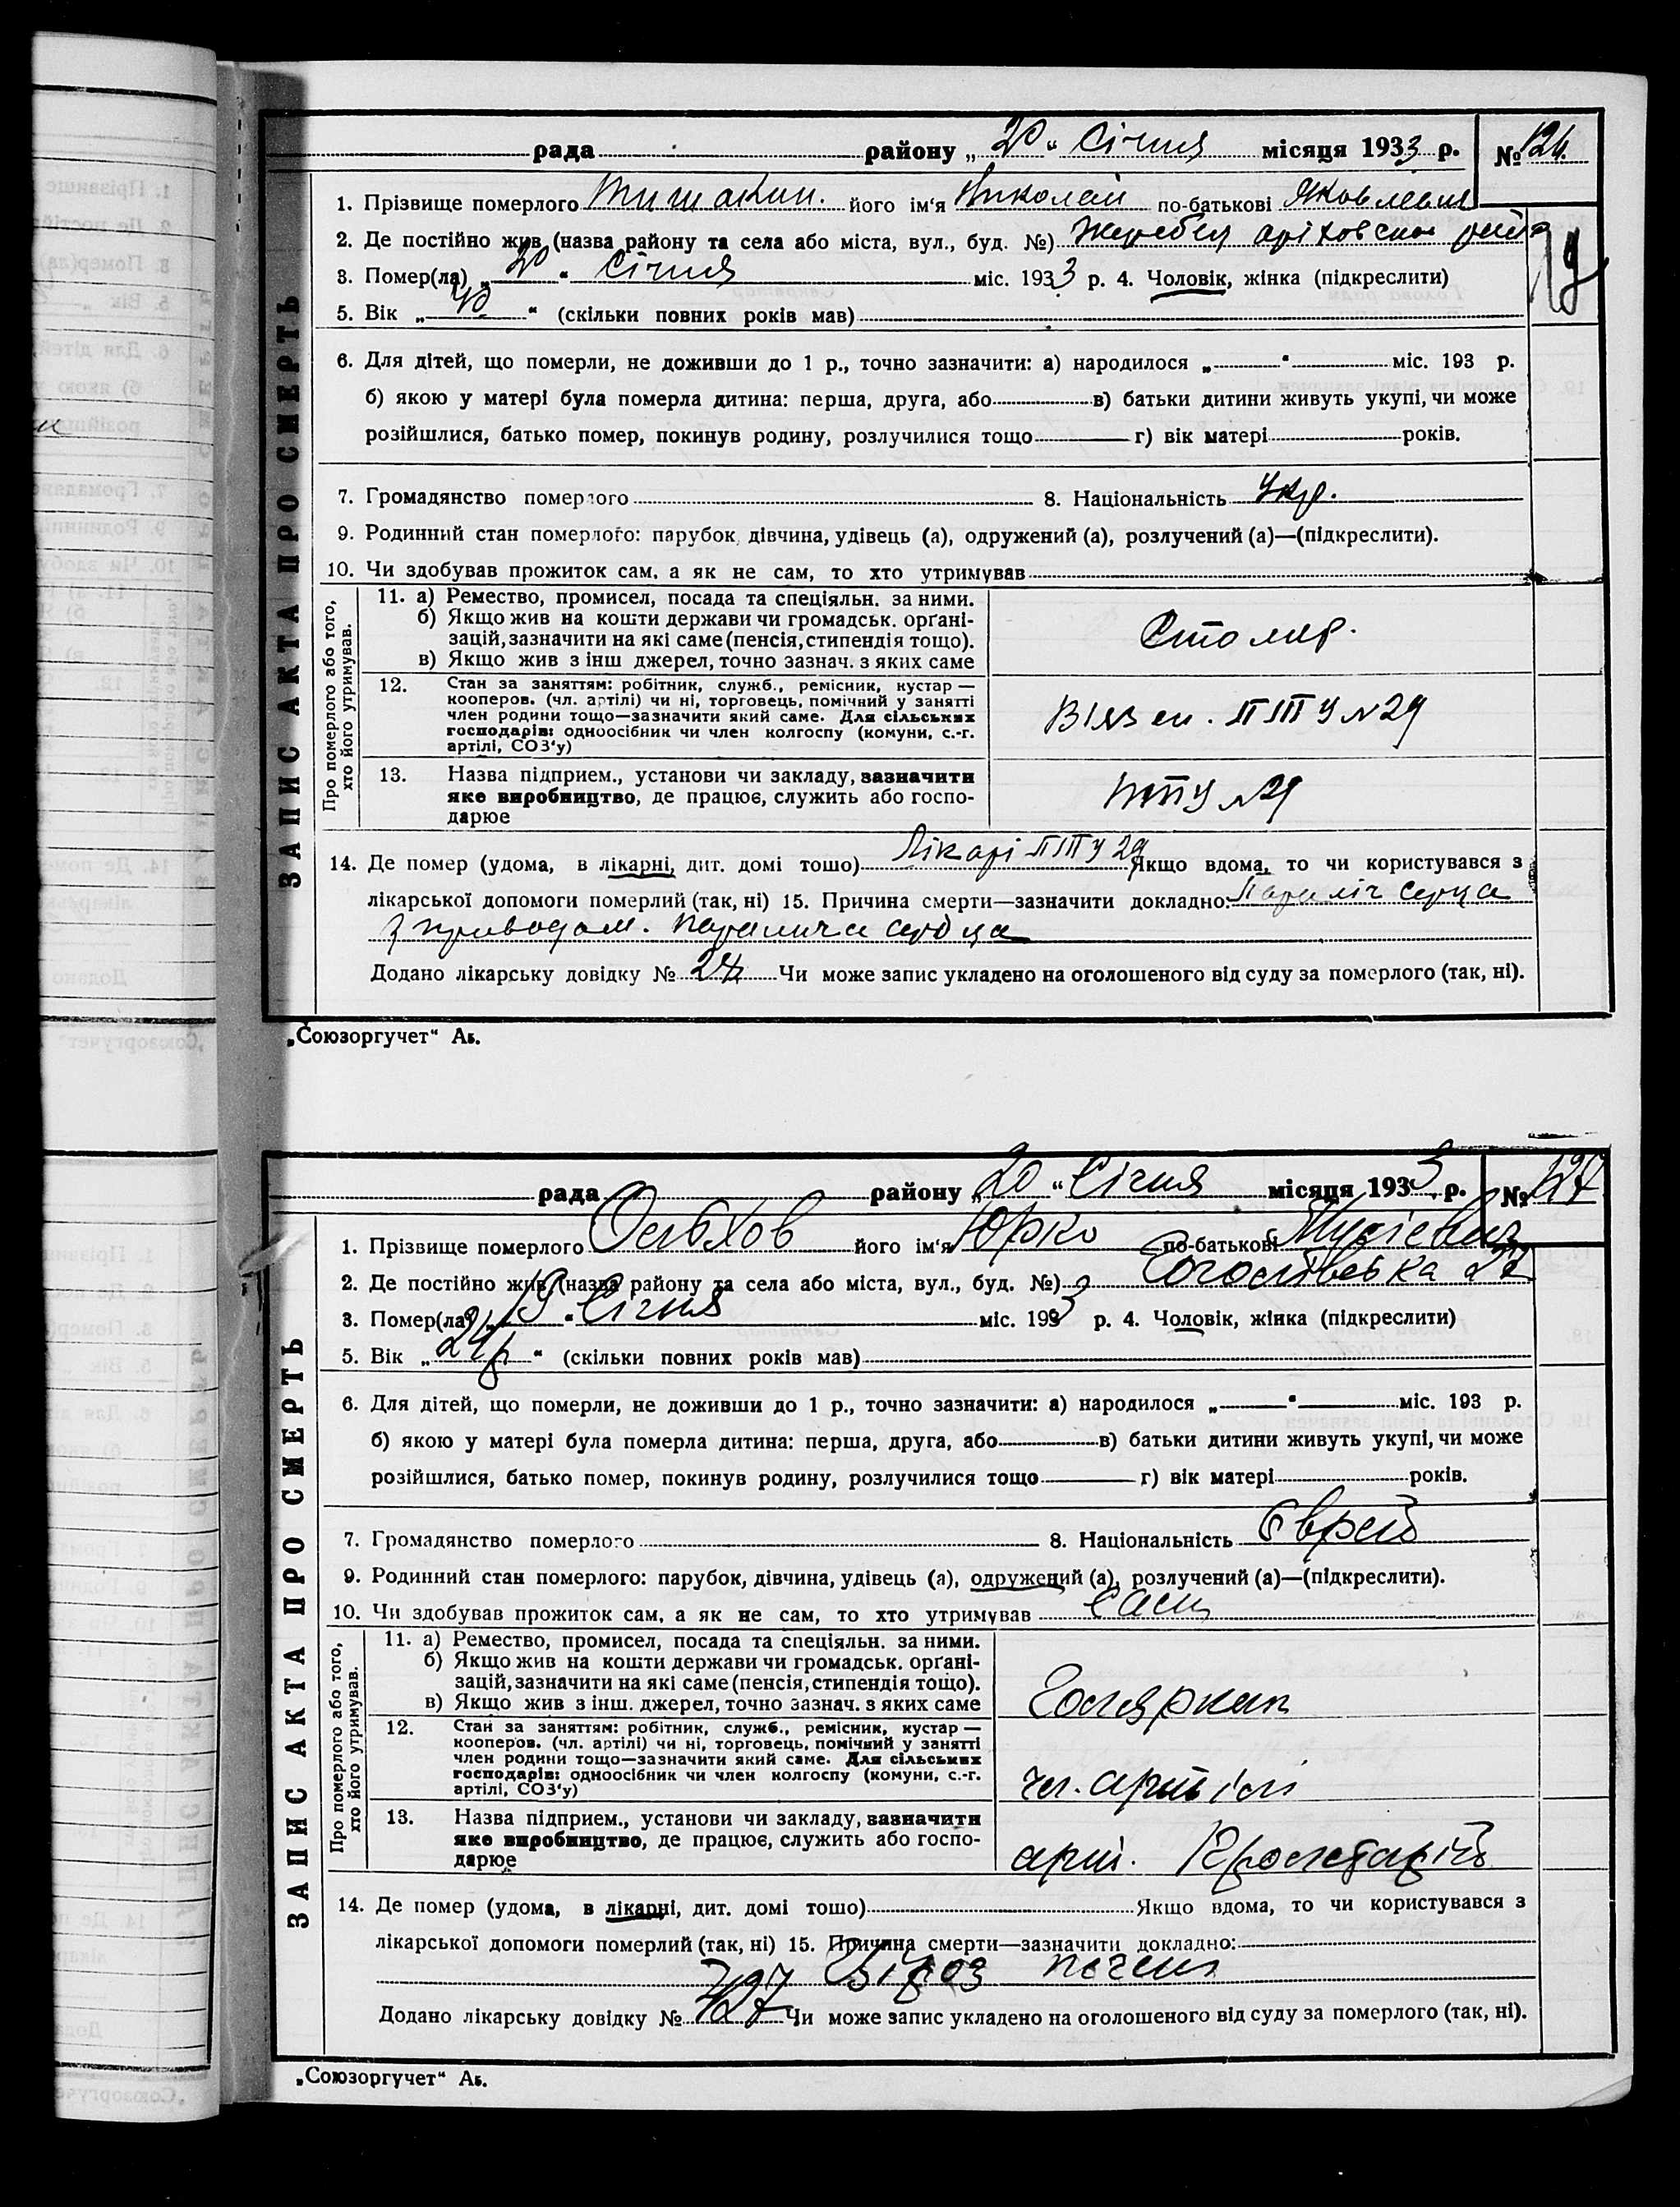 рада району „20“ Січня місяця 1933 р. №
ЗАПИС АКТА ПРО СМЕРТЬ
1. Прізвище померлого Тишакин. його ім‘я Николай по-батькові Яковлевич
2. Де постійно жив (назва району та села або міста, вул., буд. №) Жеребец оріховский
3. Помер(ла) „20“ Січня міс. 1933 р. 4. Чоловік, жінка (підкреслити)
5. Вік „40“ (скільки повних років мав)
6. Для дітей, що померли, не доживши до 1 р., точно зазначити: а) народилося „ “ міс. 193 р.
б) якою у матері була померла дитина: перша, друга, або в) батьки дитини живуть укупі, чи може
розійшлися, батько помер, покинув родину, розлучилися тощо г) вік матері років.
7. Громадянство померлого 8. Національність Укр.
9. Родинний стан померлого: парубок, дівчина, удівець (а), одружений (а), розлучений (а)—(підкреслити).
10. Чи здобував прожиток сам, а як не сам, то хто утримував
Про померлого або того, хто його утримував.
11. а) Ремество, промисел, посада та спеціяльн. за ними.
б) Якщо жив на кошти держави чи громадськ. орґані-
зацій, зазначити на які саме (пенсія, стипендія тощо).
в) Якщо жив з інш джерел, точно зазнач. з яких саме
Столяр.
12. Стан за заняттям: робітник, служб., ремісник, кустар —
кооперов. (чл. артілі) чи ні, торговець, помічний у занятті
член родини тощо—зазначити який саме. Для сільських
господарів: одноосібник чи член колгоспу (комуни, с.-г.
артілі, СОЗ‘у)
Вязен. ПТУ №29
13. Назва підприєм., установи чи закладу, зазначити
яке виробництво, де працює, служить або госпо-
дарює
ПТУ №29
14. Де помер (удома, в лікарні, дит. домі тошо) Лікарі ПТУ 29 Якщо вдома, то чи користувався з
лікарської допомоги померлий (так, ні) 15. Причина смерти—зазначити докладно: Параліч серца
з приводом. паралича сердца
Додано лікарську довідку № 24 Чи може запис укладено на оголошеного від суду за померлого (так, ні).
„Союзоргучет“ Аь.
рада району „20“ Січня місяця 1933 р. № 127
ЗАПИС АКТА ПРО СМЕРТЬ
1. Прізвище померлого його ім‘я Юрко по-батькові
2. Де постійно жив (назва району та села або міста, вул., буд. №)
3. Помер(ла) „19“ Січня міс. 1933 р. 4. Чоловік, жінка (підкреслити)
5. Вік „ “ (скільки повних років мав)
6. Для дітей, що померли, не доживши до 1 р., точно зазначити: а) народилося „ “ міс. 193 р.
б) якою у матері була померла дитина: перша, друга, або в) батьки дитини живуть укупі, чи може
розійшлися, батько помер, покинув родину, розлучилися тощо г) вік матері років.
7. Громадянство померлого 8. Національність Єврей
9. Родинний стан померлого: парубок, дівчина, удівець (а), одружений (а), розлучений (а)—(підкреслити).
10. Чи здобував прожиток сам, а як не сам, то хто утримував сам
Про померлого або того, хто його утримував.
11. а) Ремество, промисел, посада та спеціяльн. за ними.
б) Якщо жив на кошти держави чи громадськ. орґані-
зацій, зазначити на які саме (пенсія, стипендія тощо).
в) Якщо жив з інш. джерел, точно зазнач. з яких саме
12. Стан за заняттям: робітник, служб., ремісник, кустар —
кооперов. (чл. артілі) чи ні, торговець, помічний у занятті
член родини тощо—зазначити який саме. Для сільських
господарів: одноосібник чи член колгоспу (комуни, с.-г.
артілі, СОЗ‘у)
чл. артілі
13. Назва підприєм., установи чи закладу, зазначити
яке виробництво, де працює, служить або госпо-
дарює
арт. Пролетарій
14. Де помер (удома, в лікарні, дит. домі тошо) Якщо вдома, то чи користувався з
лікарської допомоги померлий (так, ні) 15. Причина смерти—зазначити докладно:
печени
Додано лікарську довідку № Чи може запис укладено на оголошеного від суду за померлого (так, ні).
„Союзоргучет“ Аь.